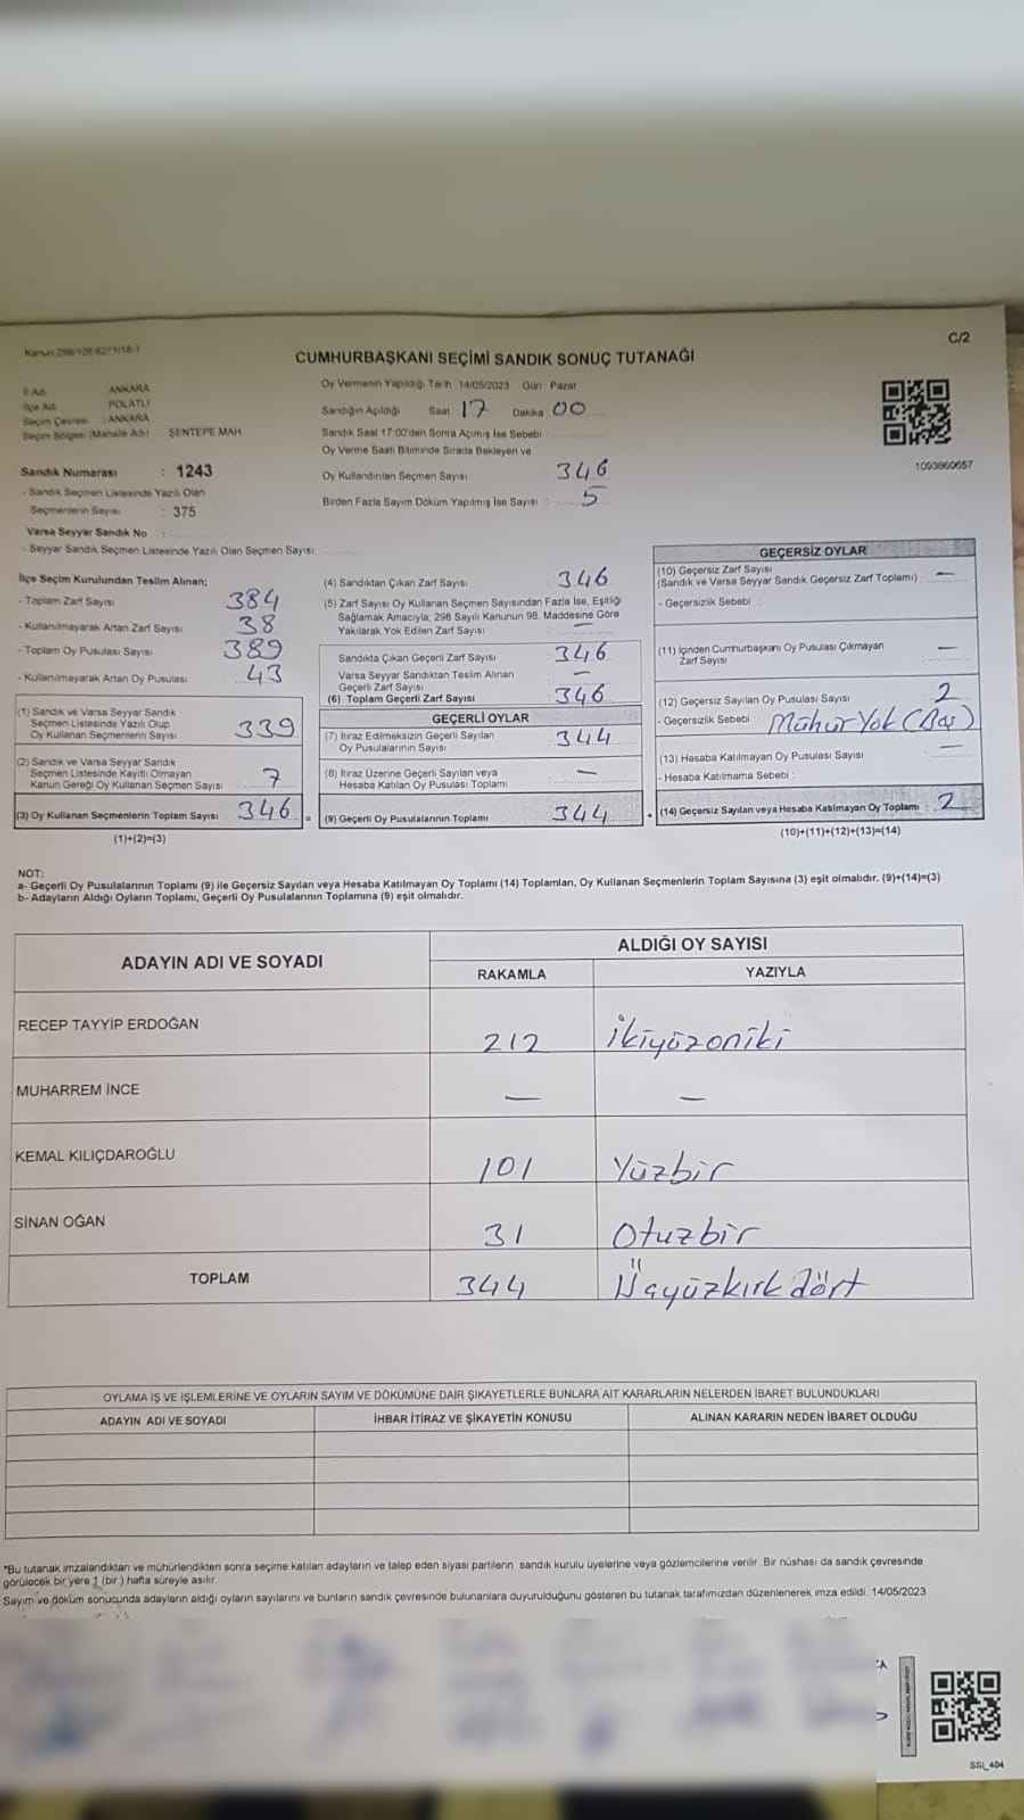 C/2
CUMHURBAŞKANI SEÇİMİ SANDIK SONUÇ TUTANAĞI
İl Adı : ANKARA
İlçe Adı : POLATLI
Seçim Çevresi : ANKARA
Seçim Bölgesi (Mahalle Adı) : ŞENTEPE MAH
Sandık Numarası : 1243
- Sandık Seçmen Listesinde Yazılı Olan
Seçmenlerin Sayısı : 375
Varsa Seyyar Sandık No :
- Seyyar Sandık Seçmen Listesinde Yazılı Olan Seçmen Sayısı:
Oy Vermenin Yapıldığı Tarih 14/05/2023 Gün: Pazar
Sandığın Açıldığı Saat 17 Dakika 00
Sandık Saat 17:00'den Sonra Açılmış İse Sebebi
Oy Verme Saati Bitiminde Sırada Bekleyen ve
Oy Kullandırılan Seçmen Sayısı 346
Birden Fazla Sayım Döküm Yapılmış İse Sayısı : 5
1093860657
İlçe Seçim Kurulundan Teslim Alınan;
- Toplam Zarf Sayısı 384
- Kullanılmayarak Artan Zarf Sayısı 38
- Toplam Oy Pusulası Sayısı 389
- Kullanılmayarak Artan Oy Pusulası 43
(1) Sandık ve Varsa Seyyar Sandık
Seçmen Listesinde Yazılı Olup
Oy Kullanan Seçmenlerin Sayısı 339
(2) Sandık ve Varsa Seyyar Sandık
Seçmen Listesinde Kayıtlı Olmayan
Kanun Gereği Oy Kullanan Seçmen Sayısı 7
(3) Oy Kullanan Seçmenlerin Toplam Sayısı 346 =
(1)+(2)=(3)
(4) Sandıktan Çıkan Zarf Sayısı 346
(5) Zarf Sayısı Oy Kullanan Seçmen Sayısından Fazla İse, Eşitliği
Sağlamak Amacıyla, 298 Sayılı Kanunun 98. Maddesine Göre
Yakılarak Yok Edilen Zarf Sayısı —
Sandıkta Çıkan Geçerli Zarf Sayısı 346
Varsa Seyyar Sandıktan Teslim Alınan
Geçerli Zarf Sayısı —
(6) Toplam Geçerli Zarf Sayısı 346
GEÇERLİ OYLAR
(7) İtiraz Edilmeksizin Geçerli Sayılan
Oy Pusulalarının Sayısı 344
(8) İtiraz Üzerine Geçerli Sayılan veya
Hesaba Katılan Oy Pusulası Toplamı —
(9) Geçerli Oy Pusulalarının Toplamı 344 +
GEÇERSİZ OYLAR
(10) Geçersiz Zarf Sayısı
(Sandık ve Varsa Seyyar Sandık Geçersiz Zarf Toplamı) —
- Geçersizlik Sebebi :
(11) İçinden Cumhurbaşkanı Oy Pusulası Çıkmayan
Zarf Sayısı —
(12) Geçersiz Sayılan Oy Pusulası Sayısı 2
- Geçersizlik Sebebi Mühür Yok (Boş)
(13) Hesaba Katılmayan Oy Pusulası Sayısı —
- Hesaba Katılmama Sebebi :
(14) Geçersiz Sayılan veya Hesaba Katılmayan Oy Toplamı : 2
(10)+(11)+(12)+(13)=(14)
NOT:
a- Geçerli Oy Pusulalarının Toplamı (9) ile Geçersiz Sayılan veya Hesaba Katılmayan Oy Toplamı (14) Toplamları, Oy Kullanan Seçmenlerin Toplam Sayısına (3) eşit olmalıdır. (9)+(14)=(3)
b- Adayların Aldığı Oyların Toplamı, Geçerli Oy Pusulalarının Toplamına (9) eşit olmalıdır.
ADAYIN ADI VE SOYADI
ALDIĞI OY SAYISI
RAKAMLA YAZIYLA
RECEP TAYYİP ERDOĞAN 212 ikiyüzoniki
MUHARREM İNCE — —
KEMAL KILIÇDAROĞLU 101 Yüzbir
SİNAN OĞAN 31 Otuzbir
TOPLAM 344 Üçyüzkırkdört
OYLAMA İŞ VE İŞLEMLERİNE VE OYLARIN SAYIM VE DÖKÜMÜNE DAİR ŞİKAYETLERLE BUNLARA AİT KARARLARIN NELERDEN İBARET BULUNDUKLARI
ADAYIN ADI VE SOYADI İHBAR İTİRAZ VE ŞİKAYETİN KONUSU ALINAN KARARIN NEDEN İBARET OLDUĞU
*Bu tutanak imzalandıktan ve mühürlendikten sonra seçime katılan adayların ve talep eden siyasi partilerin sandık kurulu üyelerine veya gözlemcilerine verilir. Bir nüshası da sandık çevresinde
görülecek bir yere 1 (bir) hafta süreyle asılır.
Sayım ve döküm sonucunda adayların aldığı oyların sayılarını ve bunların sandık çevresinde bulunanlara duyurulduğunu gösteren bu tutanak tarafımızdan düzenlenerek imza edildi. 14/05/2023